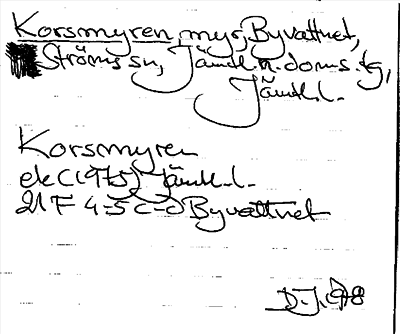 Korsmyren, myr, Byvattnet,
Ströms sn, Jämtl. n. doms. tg,
Jämtl. l.
Korsmyren
ek (1975) Jämtl. l.
21F 4-5 c-d Byvattnet
D. J. 1978